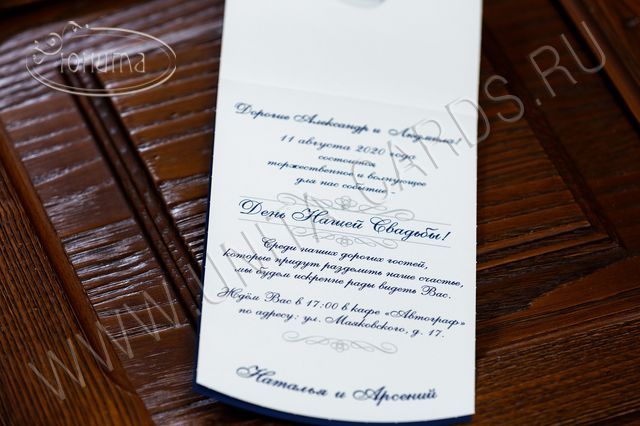 Юнита
WWW.UNITA-CARDS.RU
Дорогие Александр и Людмила!
11 августа 2020 года
состоится
торжественное и волнующее
для нас событие -
День Нашей Свадьбы!
Среди наших дорогих гостей,
которые придут разделить наше счастье,
мы будем искренне рады видеть Вас.
Ждём Вас в 17:00 в кафе «Автограф»
по адресу: ул. Маяковского, д. 17.
Наталья и Арсений